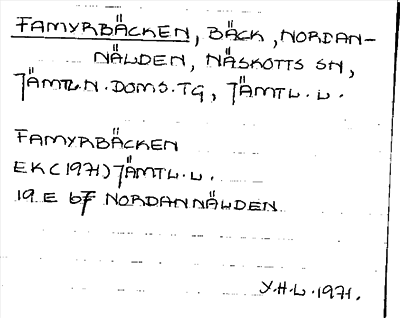 FAMYRBÄCKEN, BÄCK, NORDAN-
NÄLDEN, NÄSKOTTS SN,
JÄMTL.N.DOMS.TG, JÄMTL.L.
FAMYRBÄCKEN
EK(1971) JÄMTL.L.
19 E b7 NORDANNÄLDEN
Y.H.L.1971.